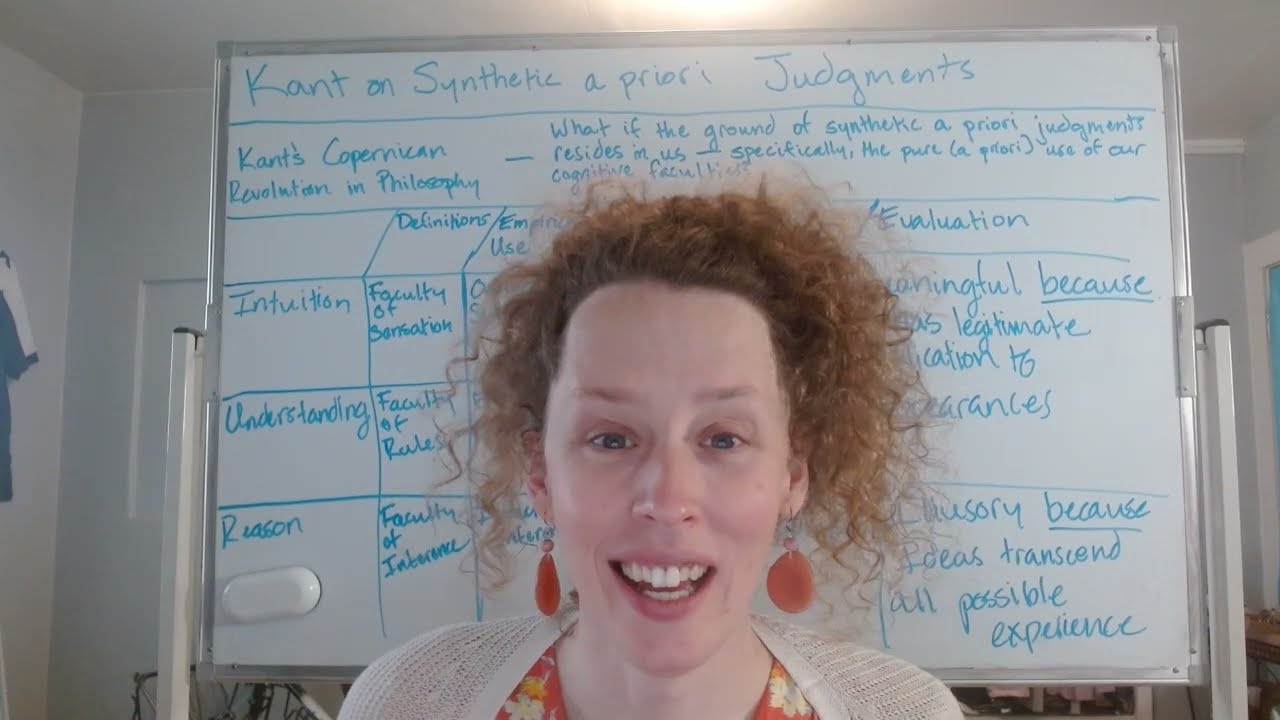 Kant on Synthetic a priori Judgments
Kant's Copernican
Revolution in Philosophy
— What if the ground of synthetic a priori judgments
resides in us — specifically, the pure (a priori) use of our
cognitive faculties?
Definitions
Use
Evaluation
Intuition
Faculty
of
Sensation
because
legitimate
to
Understanding
Faculty
of
Rules
Reason
Faculty
of
Inference
because
Ideas transcend
all possible
experience